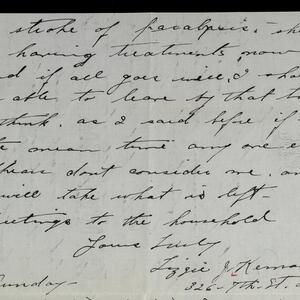 stroke of paralysis, sh
having treatments now
d if all goes will, I sha
able to leave by that t
think. as I said before if
e mean time any one e
don't consider me, an
will take what is left-
eetings to the household
Yours Truly
Lizzie J. Kema
unday-
326- 7th. St.